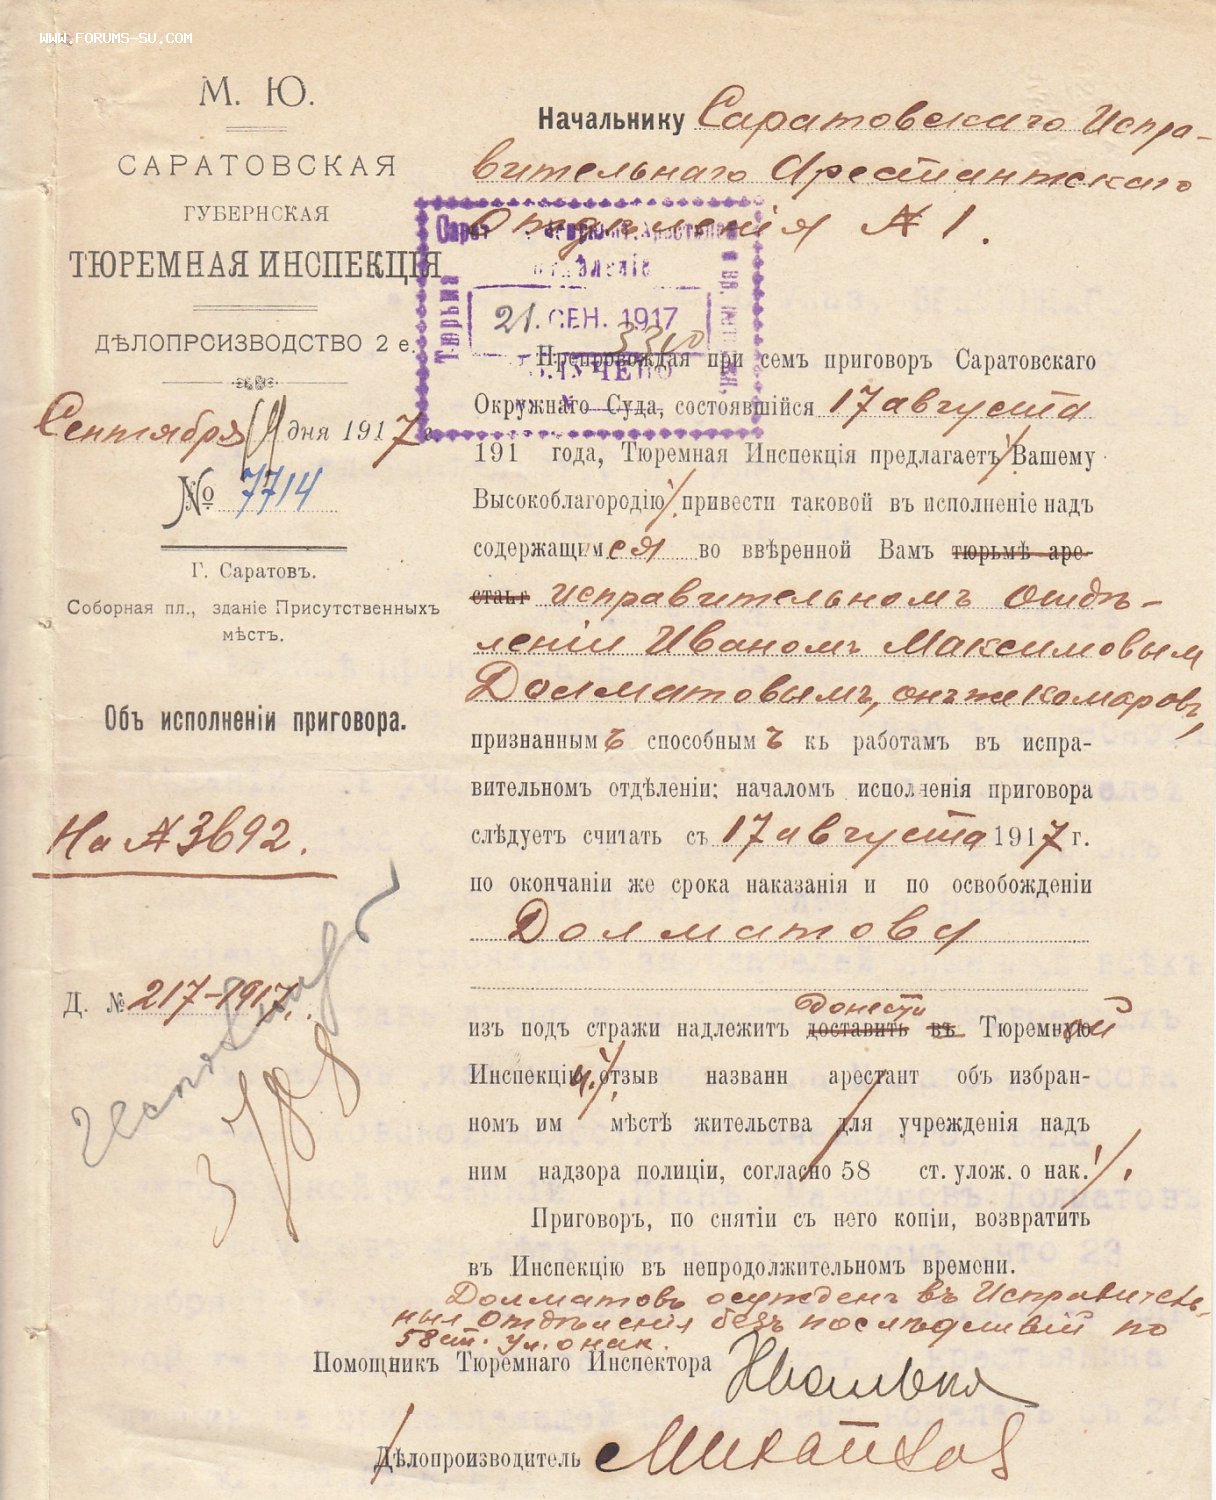 WWW.FORUMS-SU.COM
М. Ю.
САРАТОВСКАЯ
ГУБЕРНСКАЯ
ТЮРЕМНАЯ ИНСПЕКЦІЯ
ДѢЛОПРОИЗВОДСТВО 2 е.
Сентября 14 дня 1917 г.
№ 7714
Г. Саратовъ.
Соборная пл., зданіе Присутственныхъ
мѣстъ.
Объ исполненіи приговора.
На № 3692.
Д. № 217-1917.
Начальнику Саратовскаго Испра-
вительнаго Арестантскаго
Отдѣленія № 1.
21. СЕН. 1917
3310
ПОЛУЧЕНО
Тюрьма
Препровождая при семъ приговоръ Саратовскаго
Окружнаго Суда, состоявшійся 17 августа
191 года, Тюремная Инспекція предлагаетъ Вашему
Высокоблагородію привести таковой въ исполненіе надъ
содержащимся во ввѣренной Вамъ тюрьмѣ аре-
стант исправительномъ отдѣ-
леніи Иваномъ Максимовым
Долматовымъ, онъ же Комаровъ,
признаннымъ способнымъ къ работамъ въ испра-
вительномъ отдѣленіи; началомъ исполненія приговора
слѣдуетъ считать съ 17 августа 1917 г.
по окончаніи же срока наказанія и по освобожденіи
Долматова
донести
изъ подъ стражи надлежитъ доставить въ Тюремную
Инспекцію отзыв названн арестант объ избран-
номъ им мѣстѣ жительства для учрежденія надъ
ним надзора полиціи, согласно 58 ст. улож. о нак.
Приговоръ, по снятіи съ него копіи, возвратить
въ Инспекцію въ непродолжительномъ времени.
Долматовъ осужденъ въ Исправитель-
ныя отдѣленія безъ послѣдствій по
58 ст. Ул. о нак.
Помощникъ Тюремнаго Инспектора
Дѣлопроизводитель